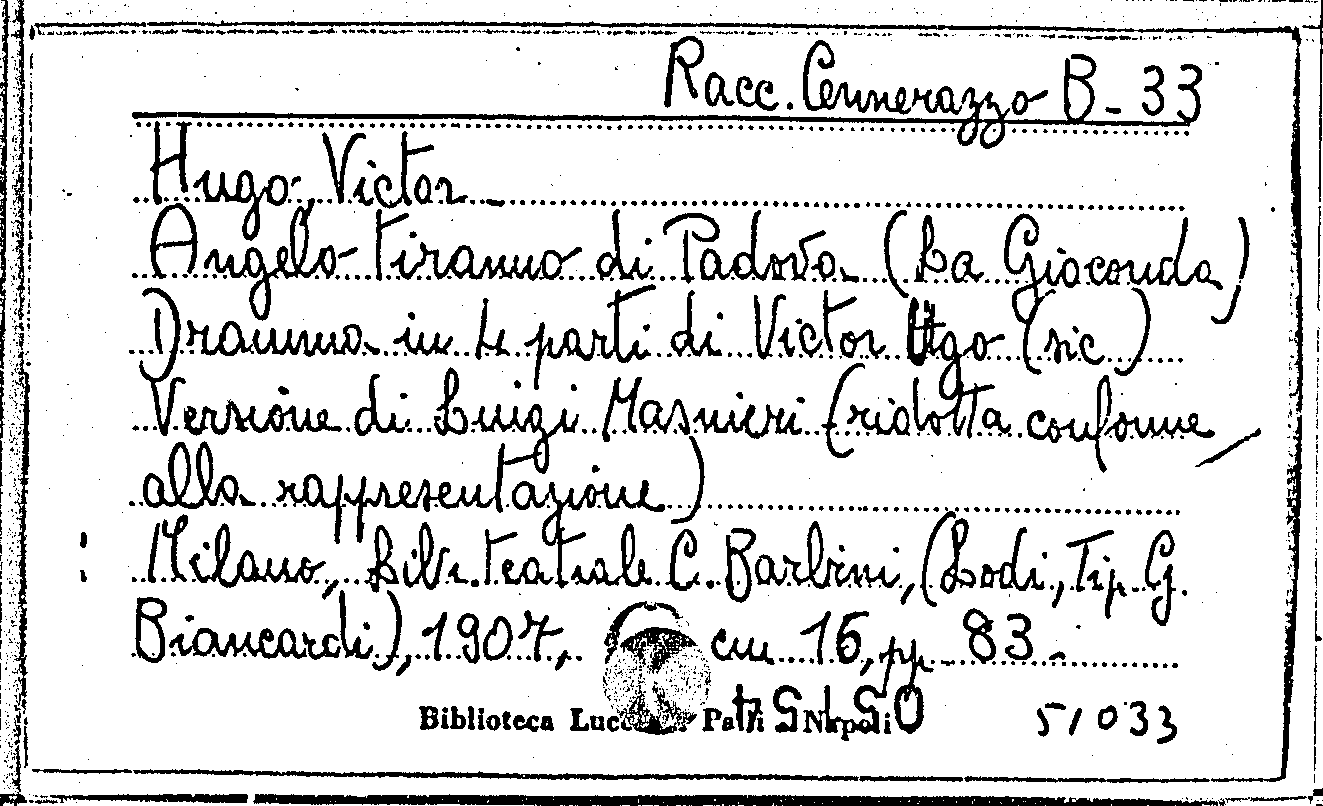 Racc. Cennerazzo B-33
Hugo, Victor
Angelo tiranno di Padova (La Gioconda)
Dramma in 4 parti di Victor Ugo (sic)
Versione di Luigi Masnieri (ridotta conforme
alla rappresentazione)
Milano, Libr. teatrale C. Barbini, (Lodi, Tip. G.
Biancardi), 1907, cm 16, pp. 83.
Biblioteca
51033